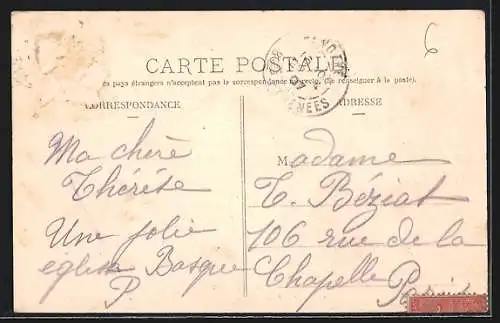 6
CARTE POSTALE
les pays étrangers n'acceptent pas la correspondance au recto. (Se renseigner à la poste).
CORRESPONDANCE
ADRESSE
Ma chère
Thérèse
Une jolie
église Basque
P
Madame
T. Béziat
106 rue de la
Chapelle